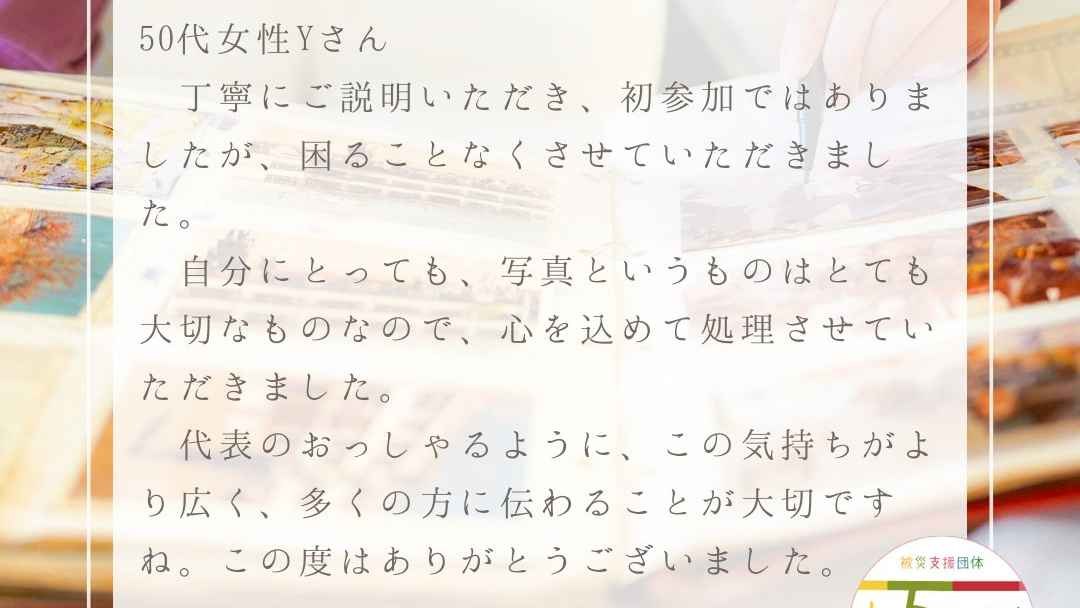 50代女性Yさん
　丁寧にご説明いただき、初参加ではありま
したが、困ることなくさせていただきまし
た。
　自分にとっても、写真というものはとても
大切なものなので、心を込めて処理させてい
ただきました。
　代表のおっしゃるように、この気持ちがよ
り広く、多くの方に伝わることが大切です
ね。この度はありがとうございました。
被災支援団体